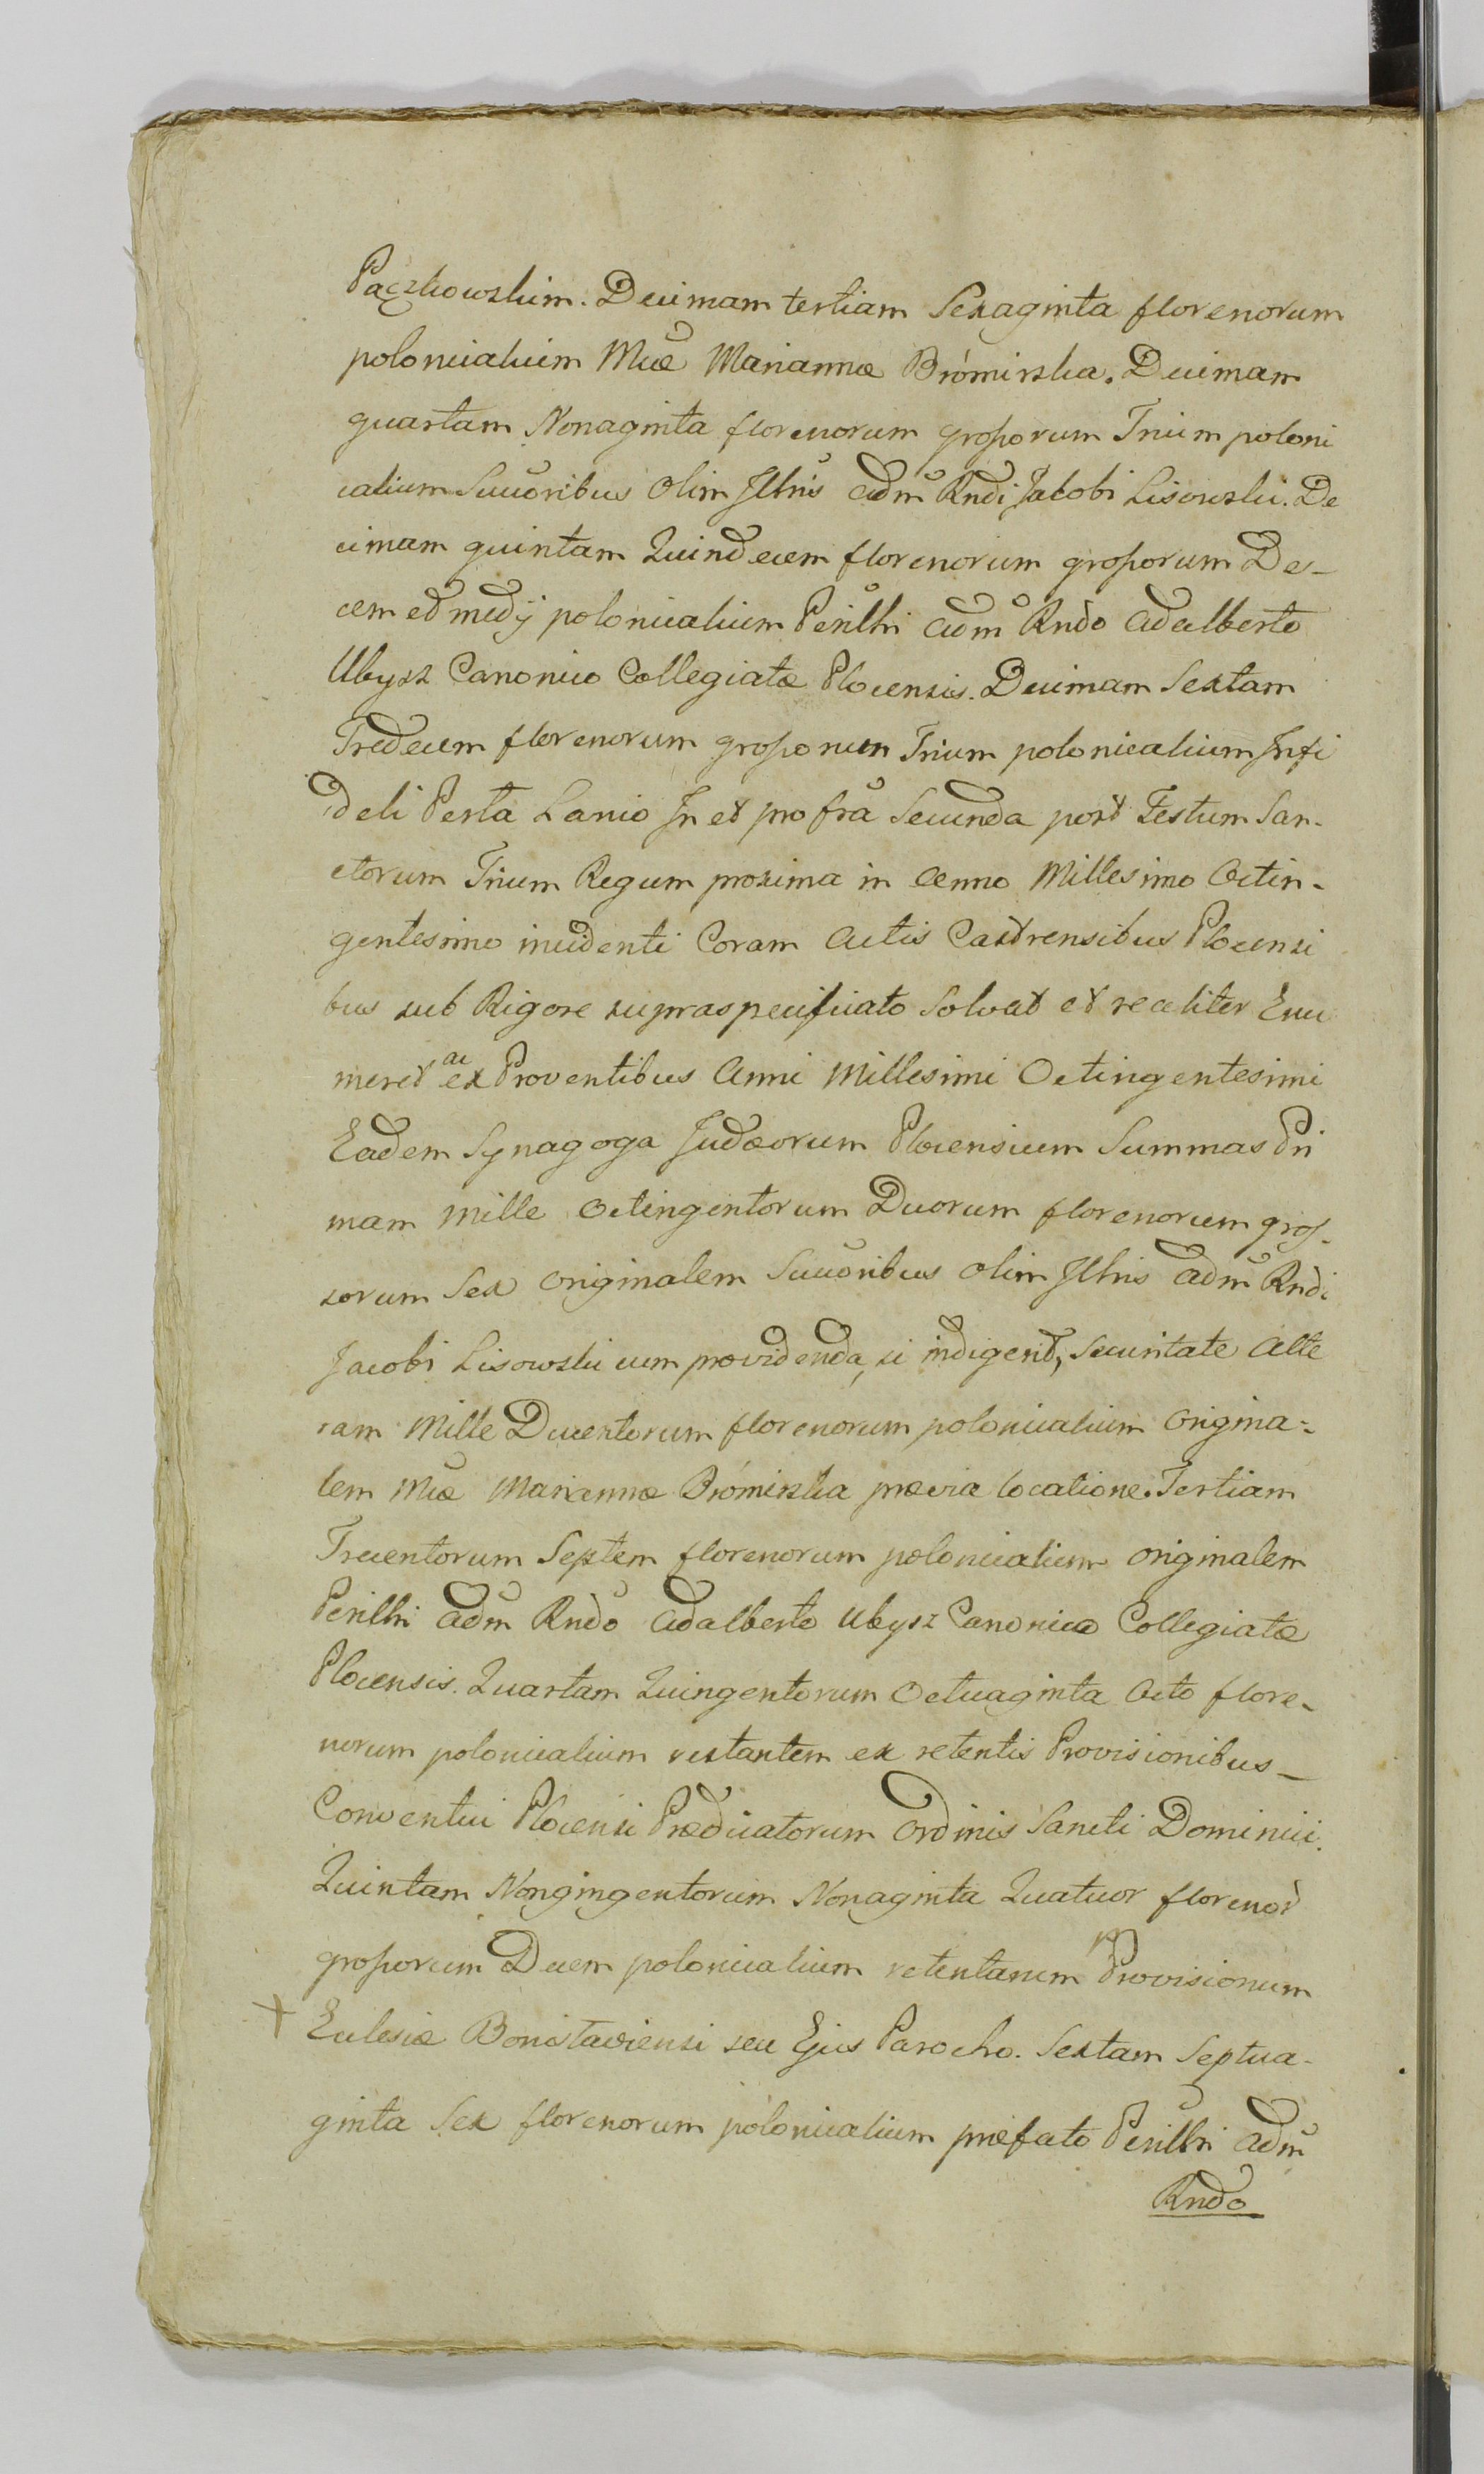 Pączkowskim. Decimam tertiam Sexaginta florenorum
polonicalium Mcæ Mariannæ Brómirska. Decimam
quartam Nonaginta florenorum grossorum Trium poloni
calium Succoribus olim Jllris adm Rndi Jacobi Lisowski. De
cimam quintam Quindecem florenorum grossorum De-
cem et medij polonicalium Perillri adm Rndo Adalberto
Ubysz Canonico Collegiatæ Plocensis. Decimam Sextam
Tredecem florenorum grossorum Trium polonicalium Jnfi
deli Perta Lanio Jn et pro fra Secunda post Festum San-
ctorum Trium Regum proxima in Anno Millesimo Octin-
gentesimo incidenti Coram Actis Castrensibus Plocensi
bus sub Rigore supraspecificato Solvat et realiter Enu
meret ac ex Proventibus Anni Millesimi Octingentesimi
Eadem Synagoga Judæorum Plocensium Summas Pri
mam Mille Octingentorum Duorum florenorum gros-
sorum Sex originalem Succoribus olim Jllris adm Rndi
Jacobi Lisowski cum prævidenda, si indigerit, Securitate Alte
ram Mille Ducentorum florenorum polonicalium origina-
lem Mcæ Mariannæ Brómirska prævia locatione. Tertiam
Trecentorum Septem florenorum polonicalium originalem
Perillri adm Rndo Adalberto Ubysz Canonico Collegiatæ
Plocensis. Quartam Quingentorum Octuaginta Octo flore-
norum polonicalium restantem ex retentis Provisionibus-
Conventui Plocensi Prædicatorum Ordinis Sancti Dominici.
Quintam Nongingentorum Nonaginta Quatuor florenor
grossorum Decem polonicalium retentarum Provisionum
+ Eclesiæ Bonislaviensi seu Ejus Parocho. Sextam Septua-
ginta Sex florenorum polonicalium præfato Perillri adm
Rndo